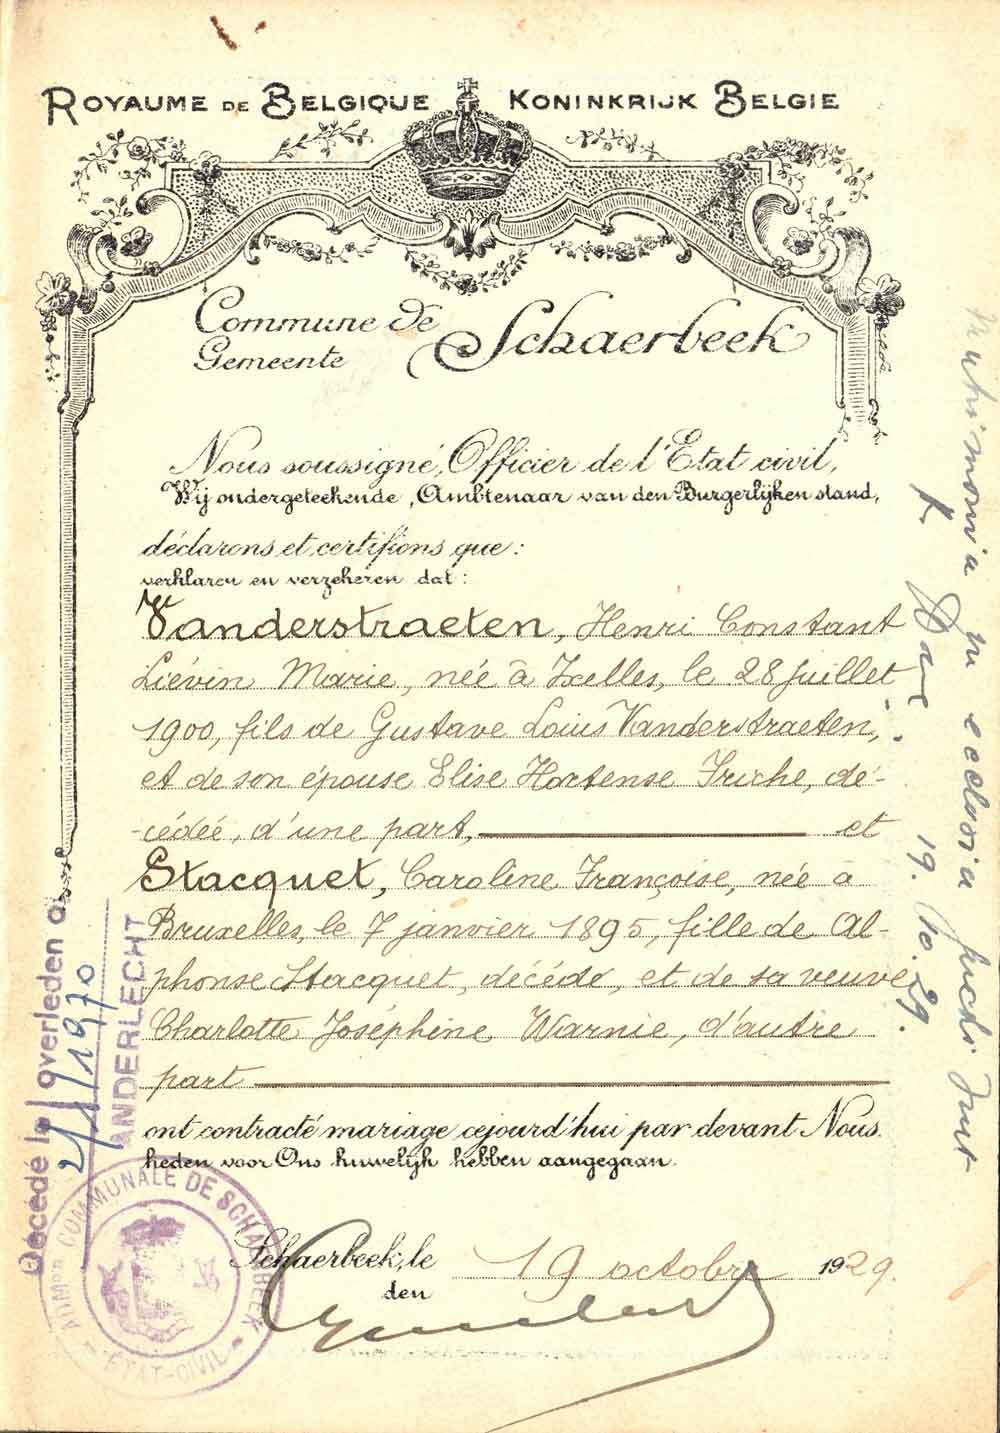 ROYAUME DE BELGIQUE KONINKRIJK BELGIE
Commune de
Gemeente
Schaerbeek
Nous soussigné, Officier de l'Etat civil,
Wij ondergeteekende, Ambtenaar van den Burgerlijken stand,
déclarons et certifions que:
verklaren en verzekeren dat:
Vanderstraeten, Henri Constant
Liévin Marie, née à Ixelles, le 28 juillet
1900, fils de Gustave Louis Vanderstraeten,
et de son épouse Elise Hortense Friche, dé-
-cédée, d'une part, et
Stacquet, Caroline Françoise, née à
Bruxelles, le 7 janvier 1895, fille de Al-
phonse Stacquet, décédé, et de sa veuve
Charlotte Joséphine Warnie, d'autre
part
ont contracté mariage cejourd'hui par devant Nous.
heden voor Ons huwelijk hebben aangegaan.
Schaerbeek, le 19 octobre 1929.
den
ADMon COMMUNALE DE SCHAERBEEK
ETAT-CIVIL
Décédé le overleden a
2/1/1970
ANDERLECHT
Matrimonia in ecclesia
19.10.29.